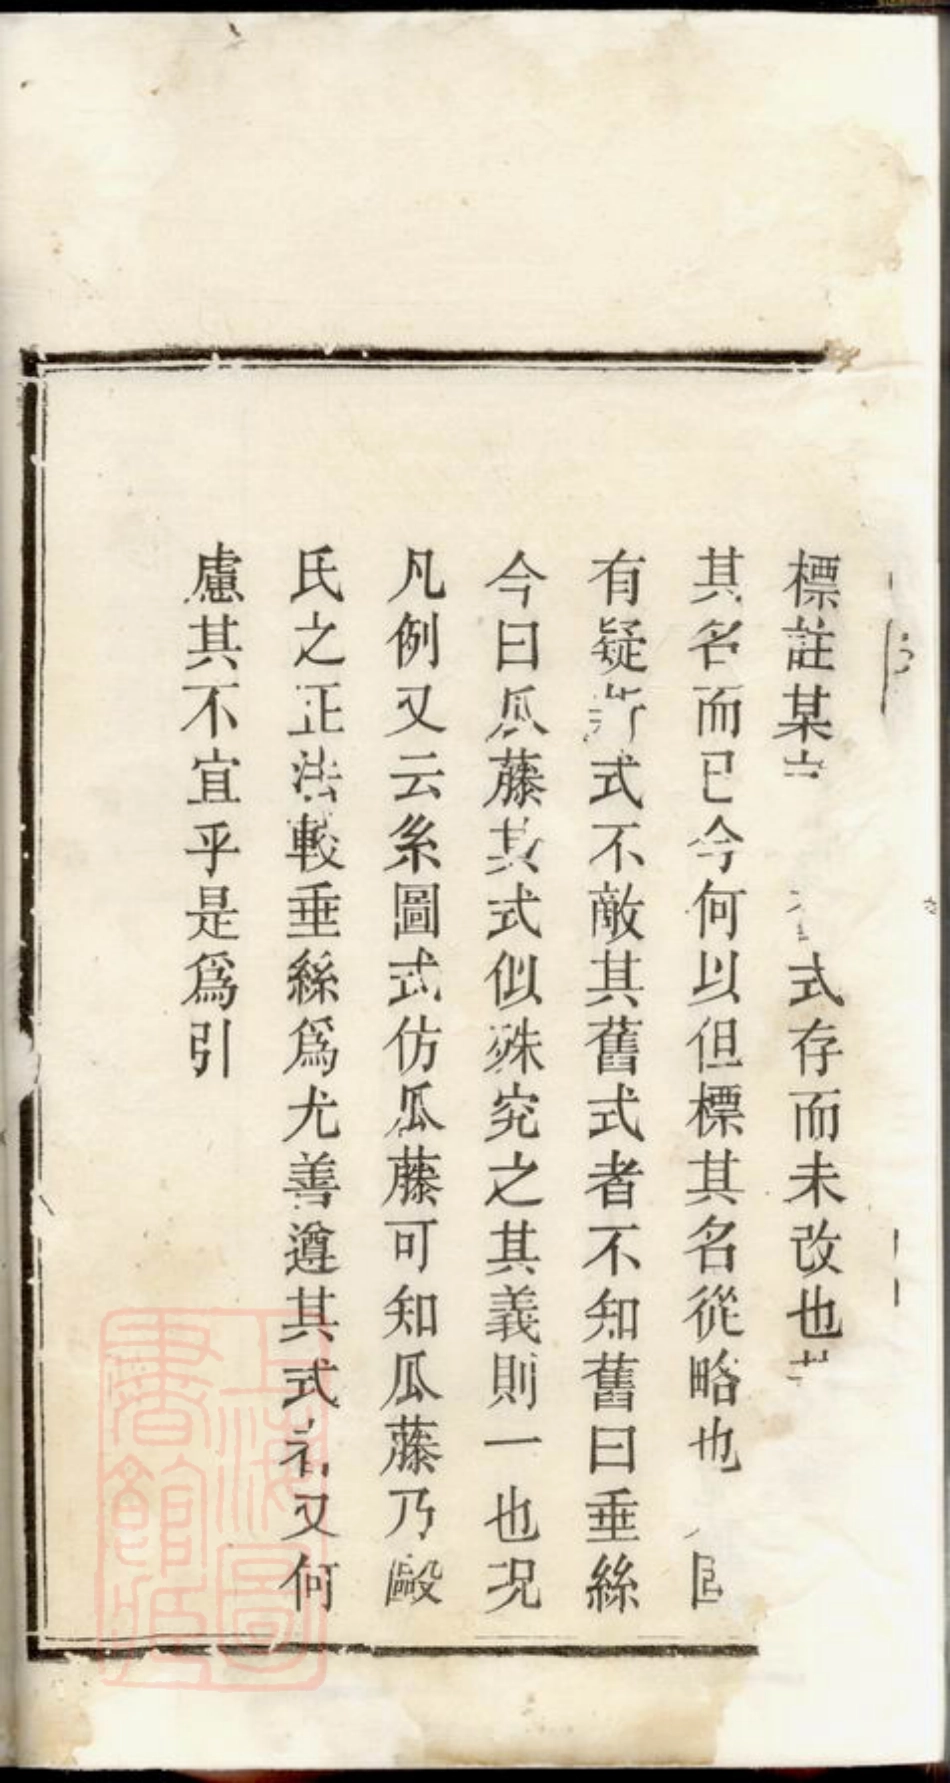 標註某式存而未改也
其名而已今何以但標其名從略也
有疑新式不敵其舊式者不知舊曰垂絲
今曰瓜藤其式似殊究之其義則一也况
凡例又云系圖式仿瓜藤可知瓜藤乃毆
氏之正法較垂絲爲尤善遵其式又何
慮其不宜乎是爲引
上海圖
書館藏